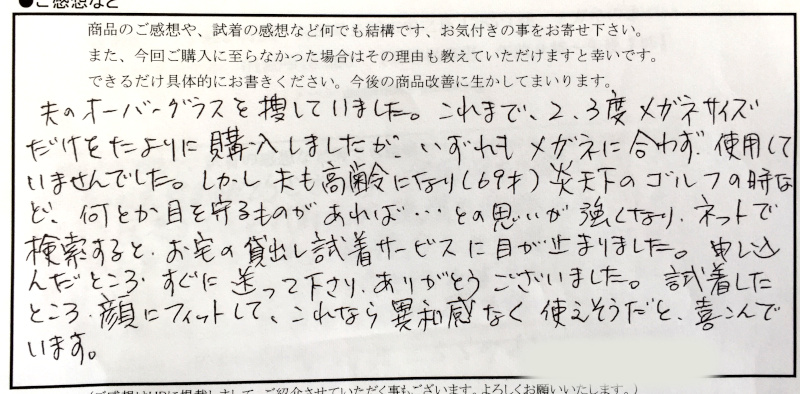 ●ご感想など
商品のご感想や、試着の感想など何でも結構です、お気付きの事をお寄せ下さい。
また、今回ご購入に至らなかった場合はその理由も教えていただけますと幸いです。
できるだけ具体的にお書きください。今後の商品改善に生かしてまいります。
夫のオーバーグラスを捜していました。これまで、2、3度メガネサイズ
だけをたよりに購入しましたが、いずれもメガネに合わず、使用して
いませんでした。しかし夫も高齢になり(69才)炎天下のゴルフの時な
ど、何とか目を守るものがあれば…との思いが強くなり、ネットで
検索すると、お宅の貸出し試着サービスに目が止まりました。申し込
んだところ、すぐに送って下さり、ありがとうございました。試着した
ところ、顔にフィットして、これなら異和感なく使えそうだと、喜こんで
います。
(ご感想はHPに掲載しまして、ご紹介させていただく事もございます。よろしくお願いいたします。)